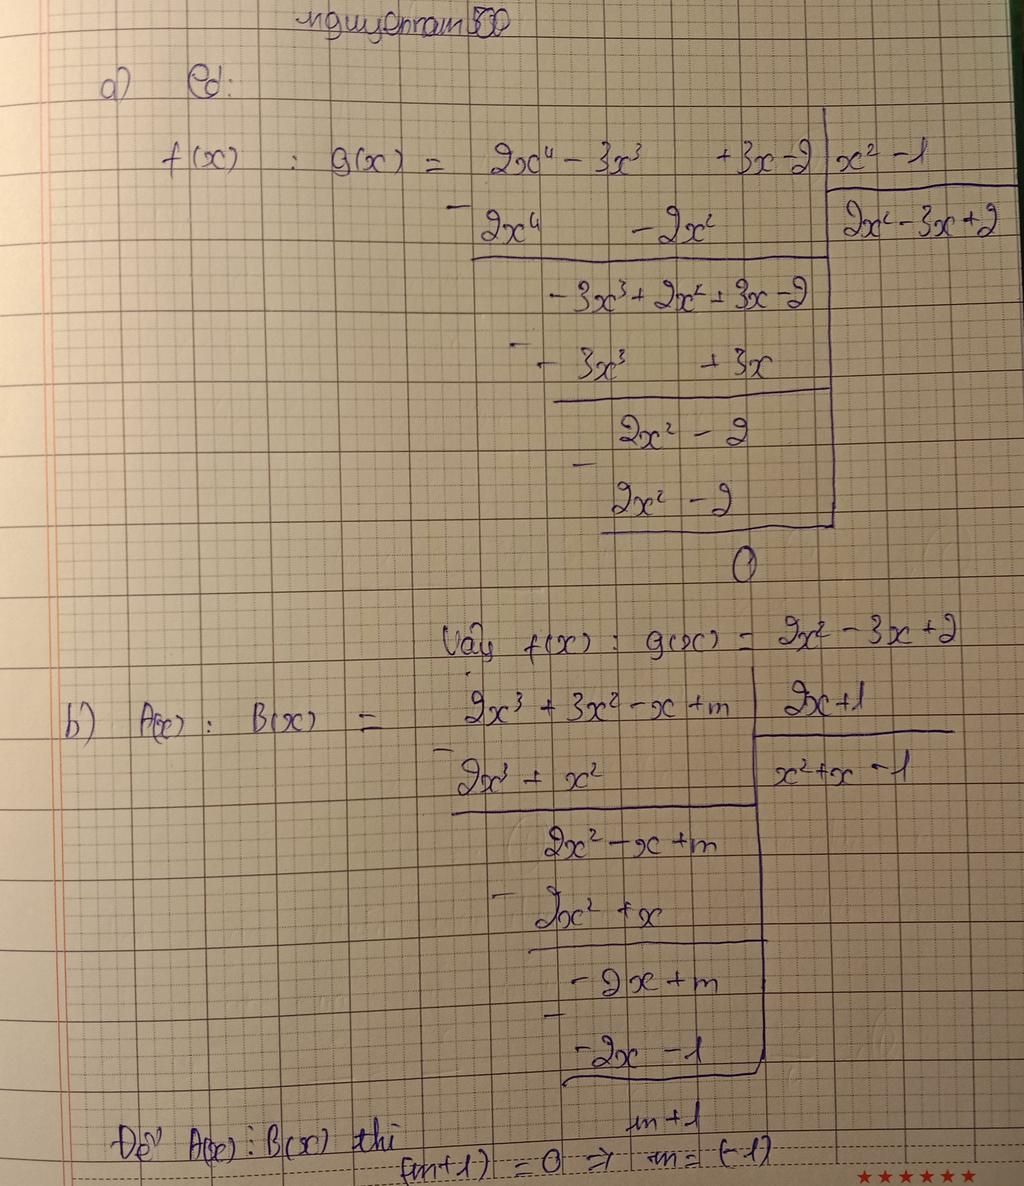 nguyennam
a) Có:
f(x) : g(x) = 2x⁴ - 3x³ + 3x - 2 | x² - 1
- 2x⁴ - 2x² | 2x² - 3x + 2
- 3x³ + 2x² + 3x - 2
- - 3x³ + 3x
2x² - 2
- 2x² - 2
0
Vậy f(x) : g(x) = 2x² - 3x + 2
b) A(x) : B(x) = 2x³ + 3x² - x + m | 2x + 1
- 2x³ + x² | x² + x - 1
2x² - x + m
- 2x² + x
- 2x + m
- - 2x - 1
m + 1
Để A(x) ⋮ B(x) thì
(m+1) = 0 ⇒ m = (-1)